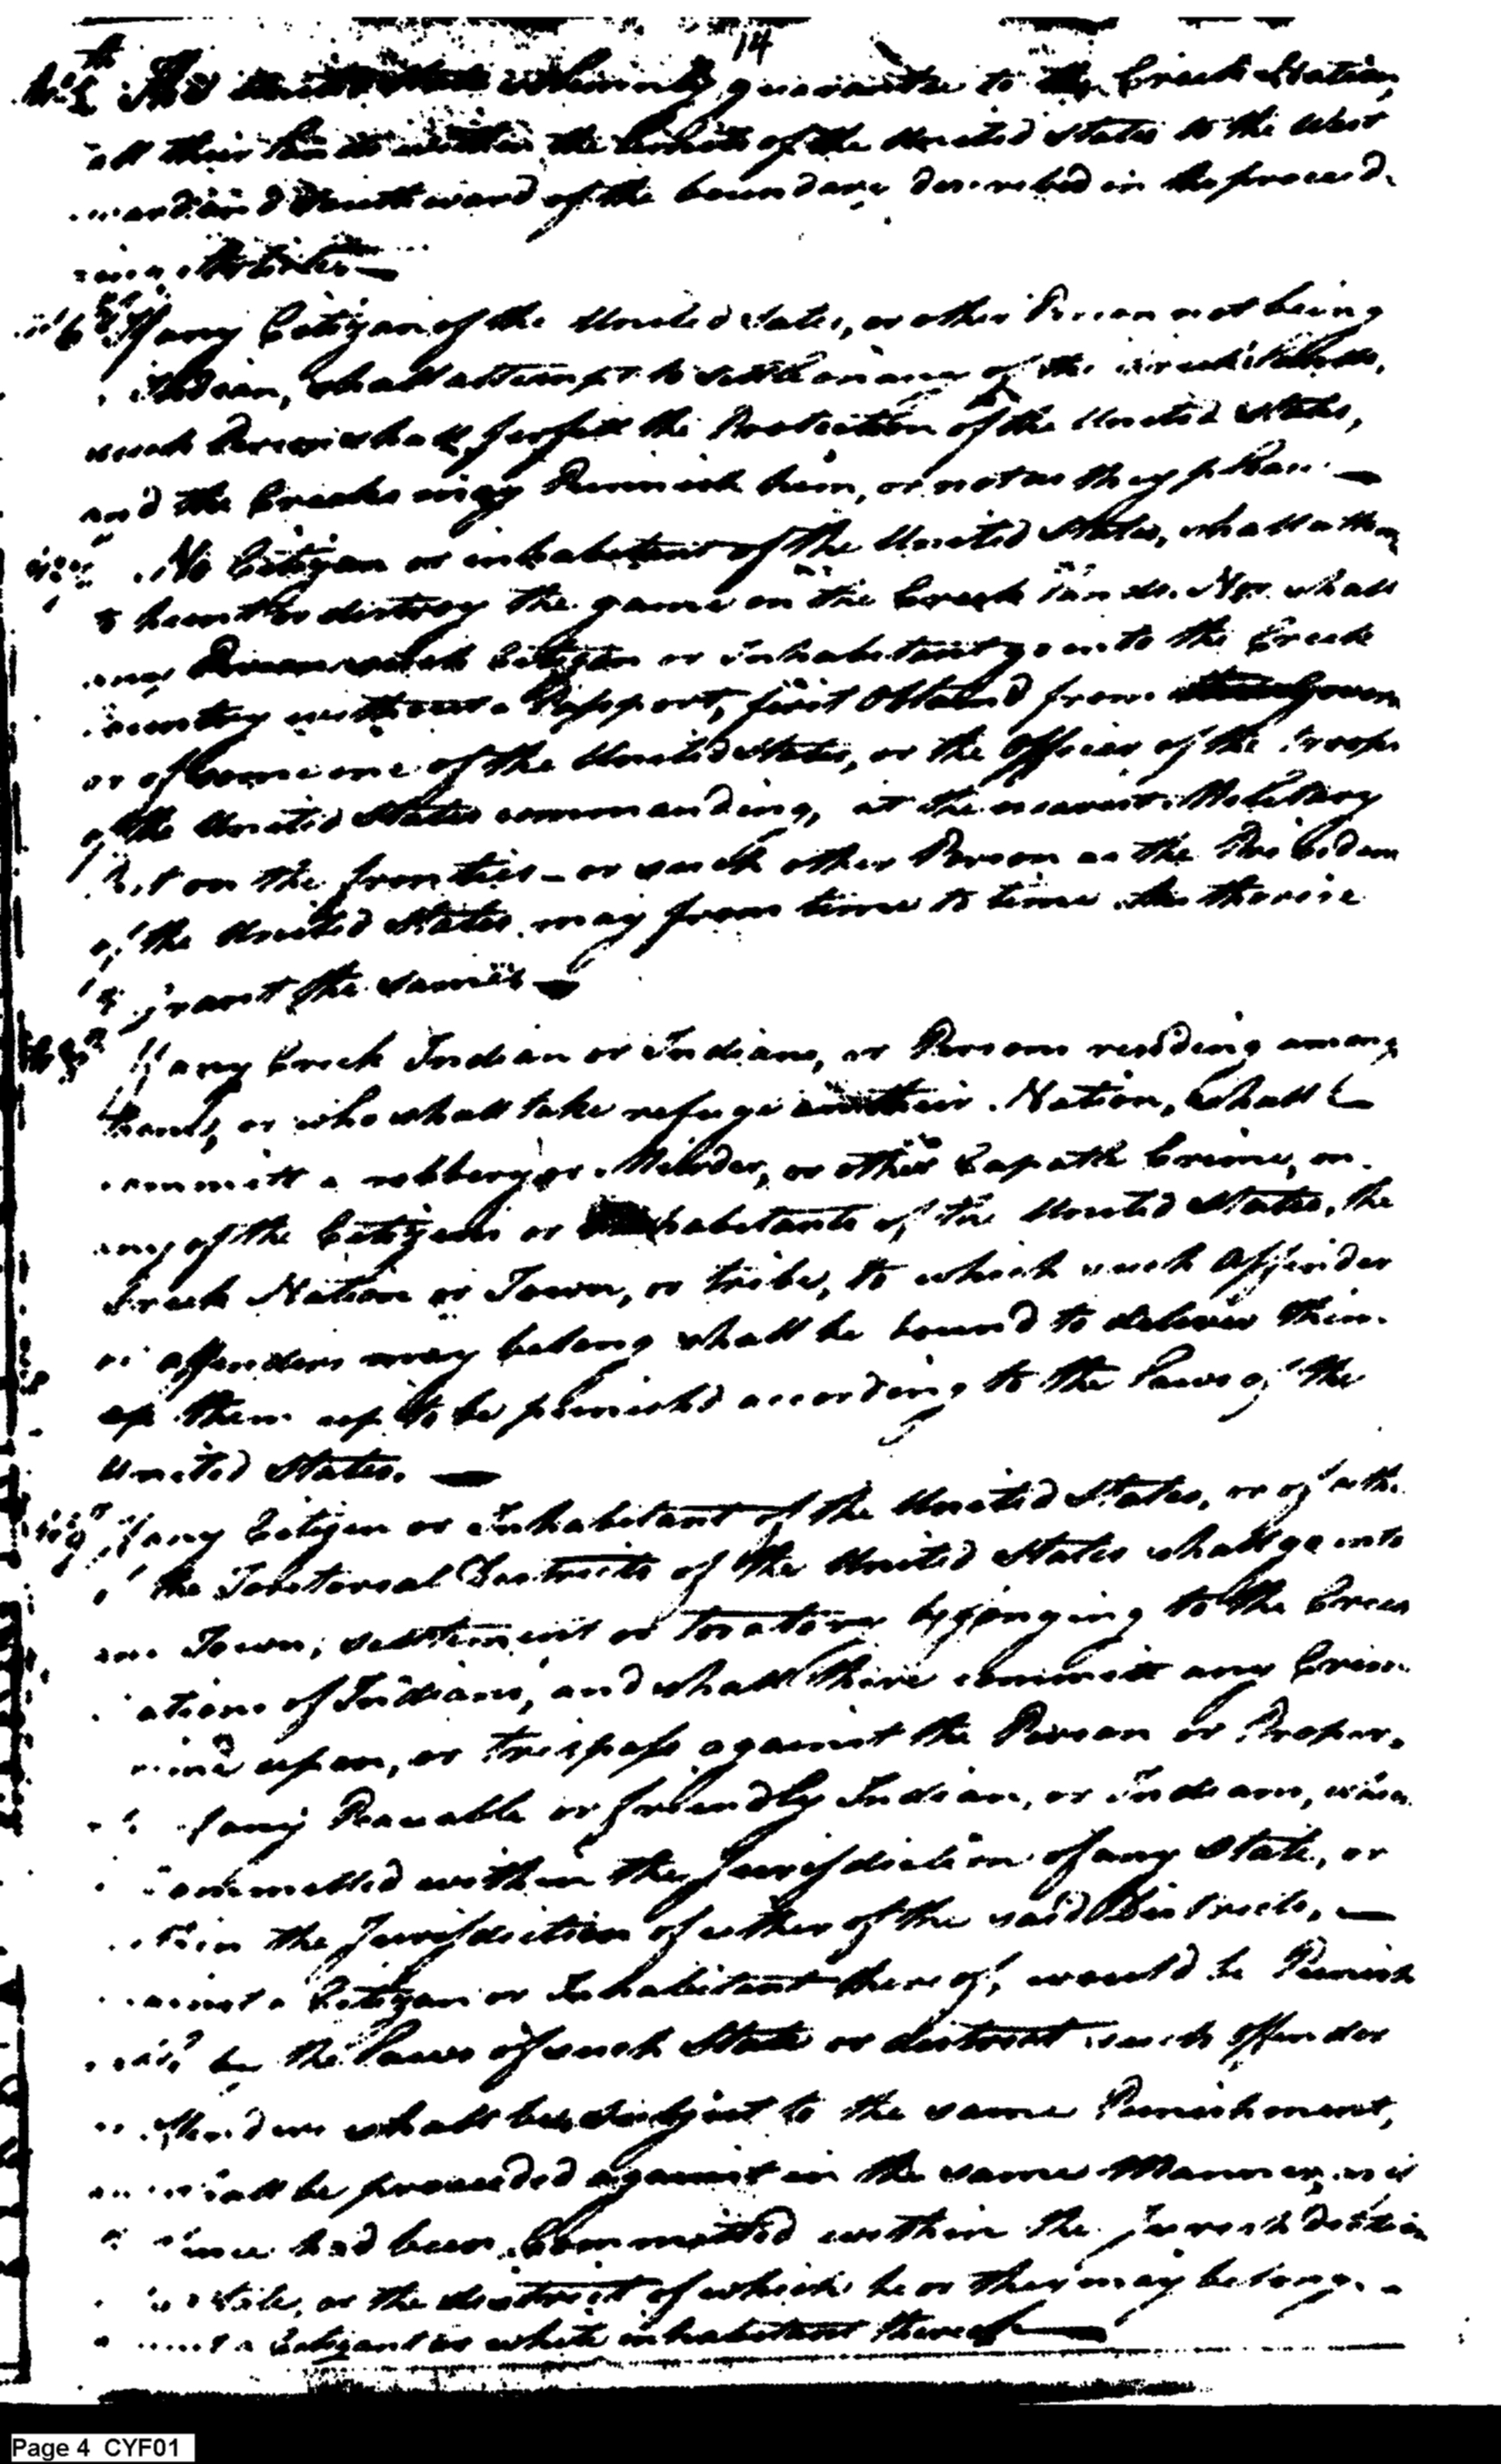 14
The solemnly guarantee to the Creek Nation,
all their within the limits of the United States to the West
ward and Southward of the boundary described in the preceed-
Articles —
6 If any Citizan of the United States, or other Person not being
Indian, shall attempt to settle on any of the Creek Lands,
such Person shall forfeit the Protection of the United States,
and the Creeks may Punnish him, or not as they please —
No Citizen or inhabitant of the United States, shall attem
to hunt or distroy the game on the Creek lands. Nor shall
any such Citizen or Inhabitant go into the Creek
Country without a Passport, first Obtained from Govern
or of some one of the United States, or the Officer of the Troops
of the United States commanding, at the nearest Military
Post on the frontier — or such other Person as the President
of the United States may from time to time Authorise
to grant the same —
8 If any Creek Indian or Indians, or Persons residing among
them, or who shall take refuge in their Nation, shall
committ a robbery or Murder, or other Capatle Crime, on
any of the Citizens or Inhabitants of the United States, the
Creek Nation or Town, or tribe, to which such Offender
or offenders may belong shall be bound to deliver
up them up to be punished according to the Laws of the
United States. —
9 If any Citizen or Inhabitant of the United States, or of eithe
of the Teritorial Districts of the United States shall go into
any Town, settlement or belonging to the Creek
ations of Indians, and shall there committ any Crim
upon, or trespass against the Person or Proper-
of any Peaceable or friendly Indian, or Indians, which
committed within the Jurisdiction of any State, or
within the Jurisdiction of either of the said Districts, —
against a Citizan or Inhabitant thereof, would be Punish
by the Laws of such State or district such Offender
or Offenders shall be Subject to the same Punishment,
shall be proceeded against in the same Manner, as if
had been Committed within the
State, or the district of which he or they may belong. -
a Citizan or white inhabitant thereof —
Page 4 CYF01